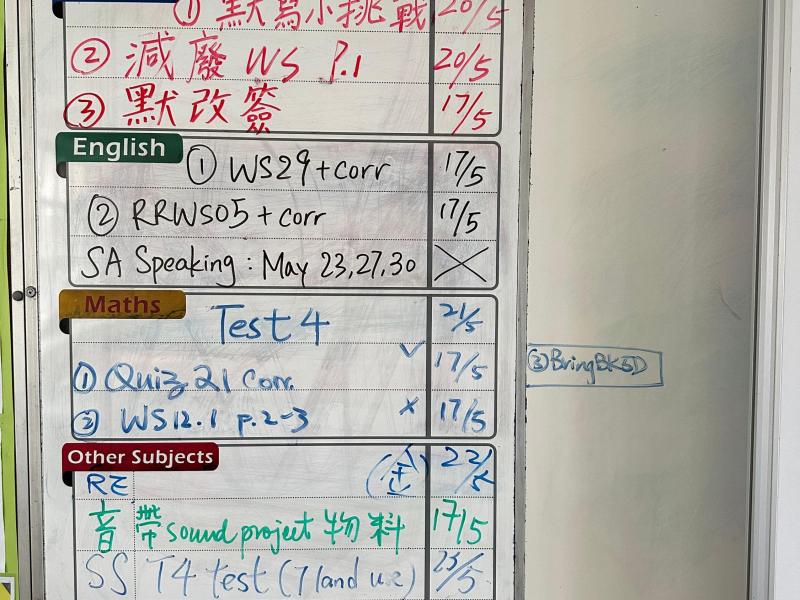 ① 默寫小挑戰 20/5
② 減廢 WS P.1 20/5
③ 默改簽 17/5
English
① WS29+corr 17/5
② RRWS05+corr 17/5
SA Speaking: May 23,27,30
Maths
Test 4 21/5
① Quiz 21 Corr. ✓ 17/5
② WS12.1 p.2-3 × 17/5
③ Bring BK5D
Other Subjects
RE 22/5
音 帶 sound project 物料 17/5
SS T4 test (7 land use) 23/5